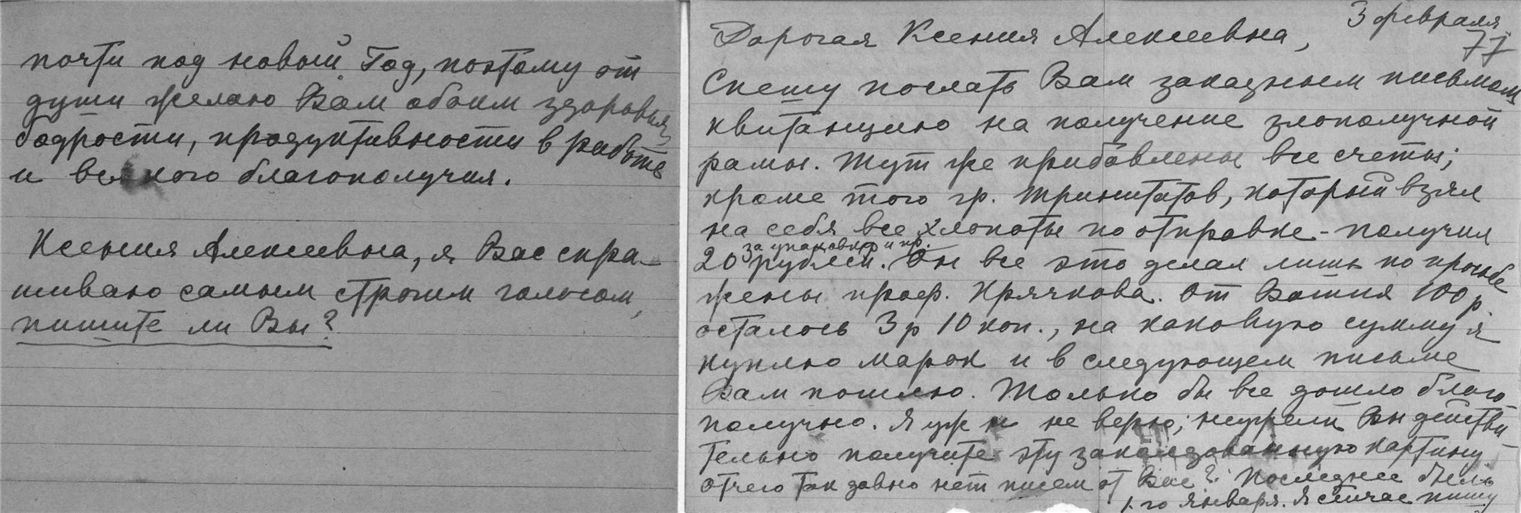 почти под новый Год, поэтому от
души желаю Вам обоим здоровья,
бодрости, продуктивности в работе
и всякого благополучия.
Ксения Алексеевна, я Вас спра-
шиваю самым строгим голосом,
пишите ли Вы?
3 февраля
77
Дорогая Ксения Алексеевна,
Спешу послать Вам заказным письмом
квитанцию на получение злополучной
рамы. Тут же прибавлены все счеты;
кроме того гр. Тринитатов, который взял
на себя все хлопоты по отправке - получил
за упаковку и пр.
20 рублей. Он все это делал лишь по просьбе
жены проф. Крячкова. От Ваших 100 р.
осталось 3 р 10 коп., на каковую сумму я
куплю марок и в следующем письме
Вам пошлю. Только бы все дошло благо
получно. Я уж и не верю; неужели Вы действи-
тельно получите эту заколдованную картину
отчего так давно нет писем от Вас? Последнее было
1-го января. Я сейчас пишу